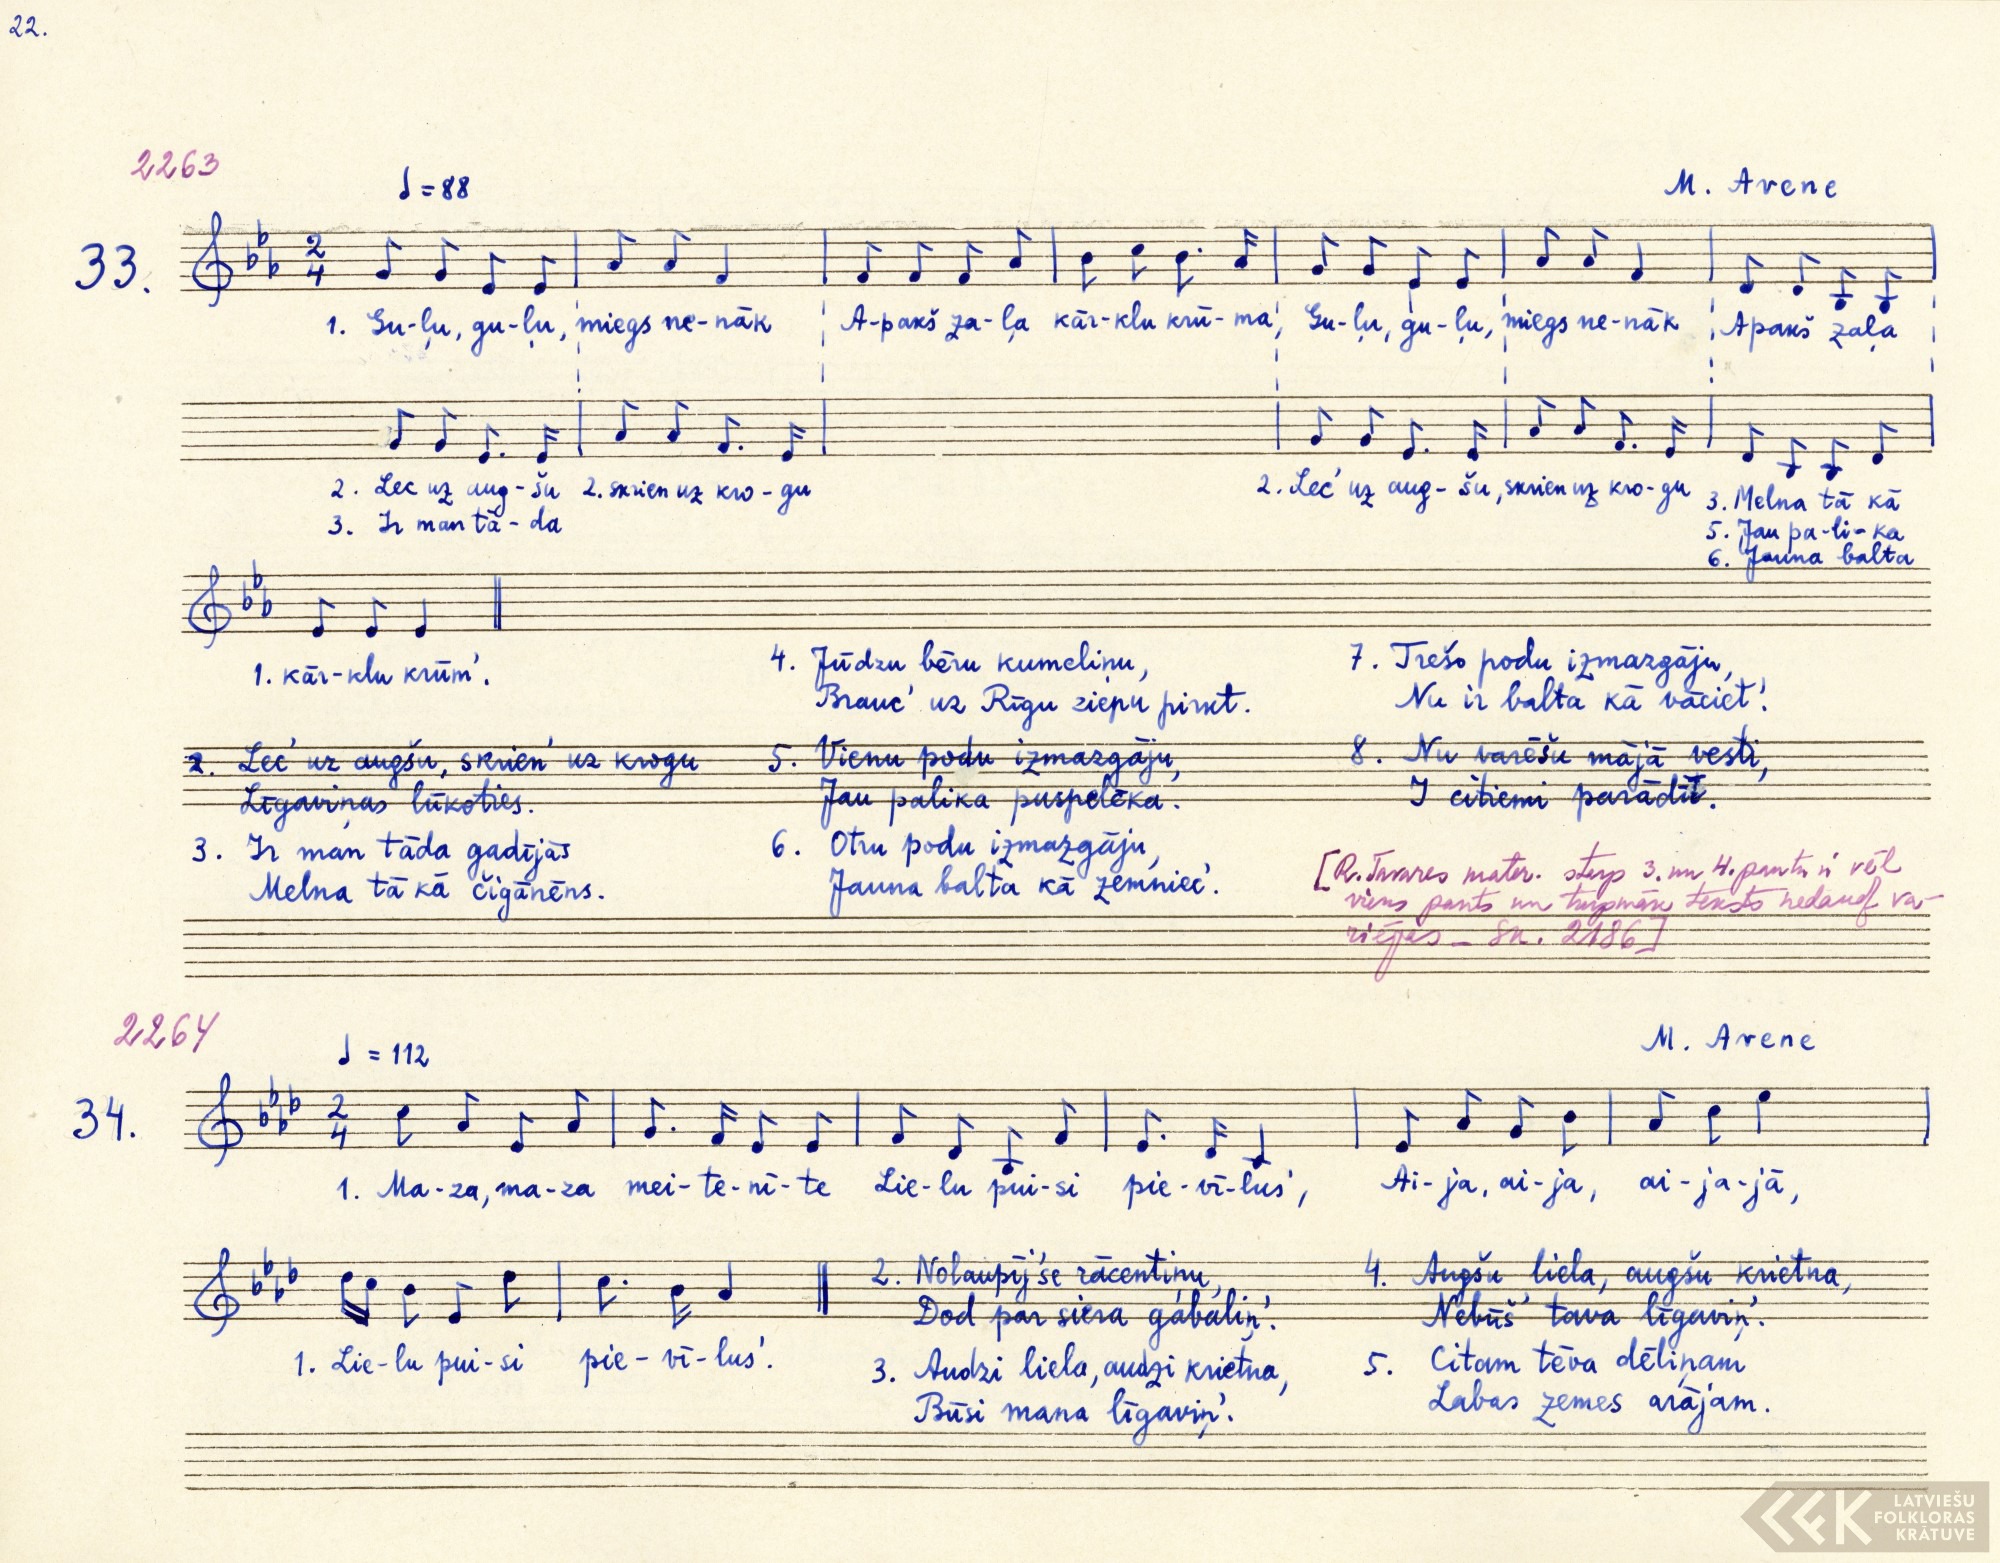 22.
2263
♩ = 88
M. Avene
33.
2
4
1. Guļu, guļu, miegs nenāk A-pakš za-ļa kār-klu krū-ma, Gu-ļu, gu-ļu, miegs ne-nāk Apakš zaļa
2. Lec uz aug-šu 2. skrien uz kro-gu 2. Lec' uz aug-šu, skrien uz kro-gu 3. Melna tā kā
3. Ir man tā-da
5. Jau pa-li-ka
6. Jauna balta
1. kār-klu krūm'.
2. Lec' uz augšu, skrien' uz krogu
Līgaviņas lūkoties.
3. Ir man tāda gadījās
Melna tā kā čigānēns.
4. Jūdzu bēru kumeliņu,
Brauc' uz Rīgu ziepu pirkt.
5. Vienu podu izmazgāju,
Jau palika puspelēka.
6. Otru podu izmazgāju,
Jauna balta kā zemniec'.
7. Trešo podu izmazgāju,
Nu ir balta kā vāciet'.
8. Nu varēšu mājā vesti,
I citiemi parādīt.
[R. Tavares mater. starp 3. un 4. pantu ir vēl
viens pants un turpmāk teksts nedaudz va-
riējas – sk. 2186]
2264
♩ = 112
M. Avene
34.
2
4
1. Ma-za, ma-za mei-te-nī-te Lie-lu pui-si pie-vī-lus', Ai-ja, ai-ja, ai-ja-jā,
1. Lie-lu pui-si pie-vī-lus'.
2. Nolaupīj'se rācentiņu,
Dod par siera gabaliņ'.
3. Audzi liela, audzi krietna,
Būsi mana līgaviņ'.
4. Augšu liela, augšu krietna,
Nebūš' tava līgaviņ'.
5. Citam tēva dēliņam
Labas zemes arājam.
LATVIEŠU
FOLKLORAS
KRĀTUVE